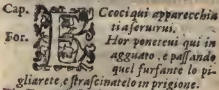 Cap. Ecoci qui apparecchia
ti a seruirui.
For. Hor poneteui qui in
agguato, e passando
quel furfante lo pi-
gliarete, e strascinatelo in prigione.